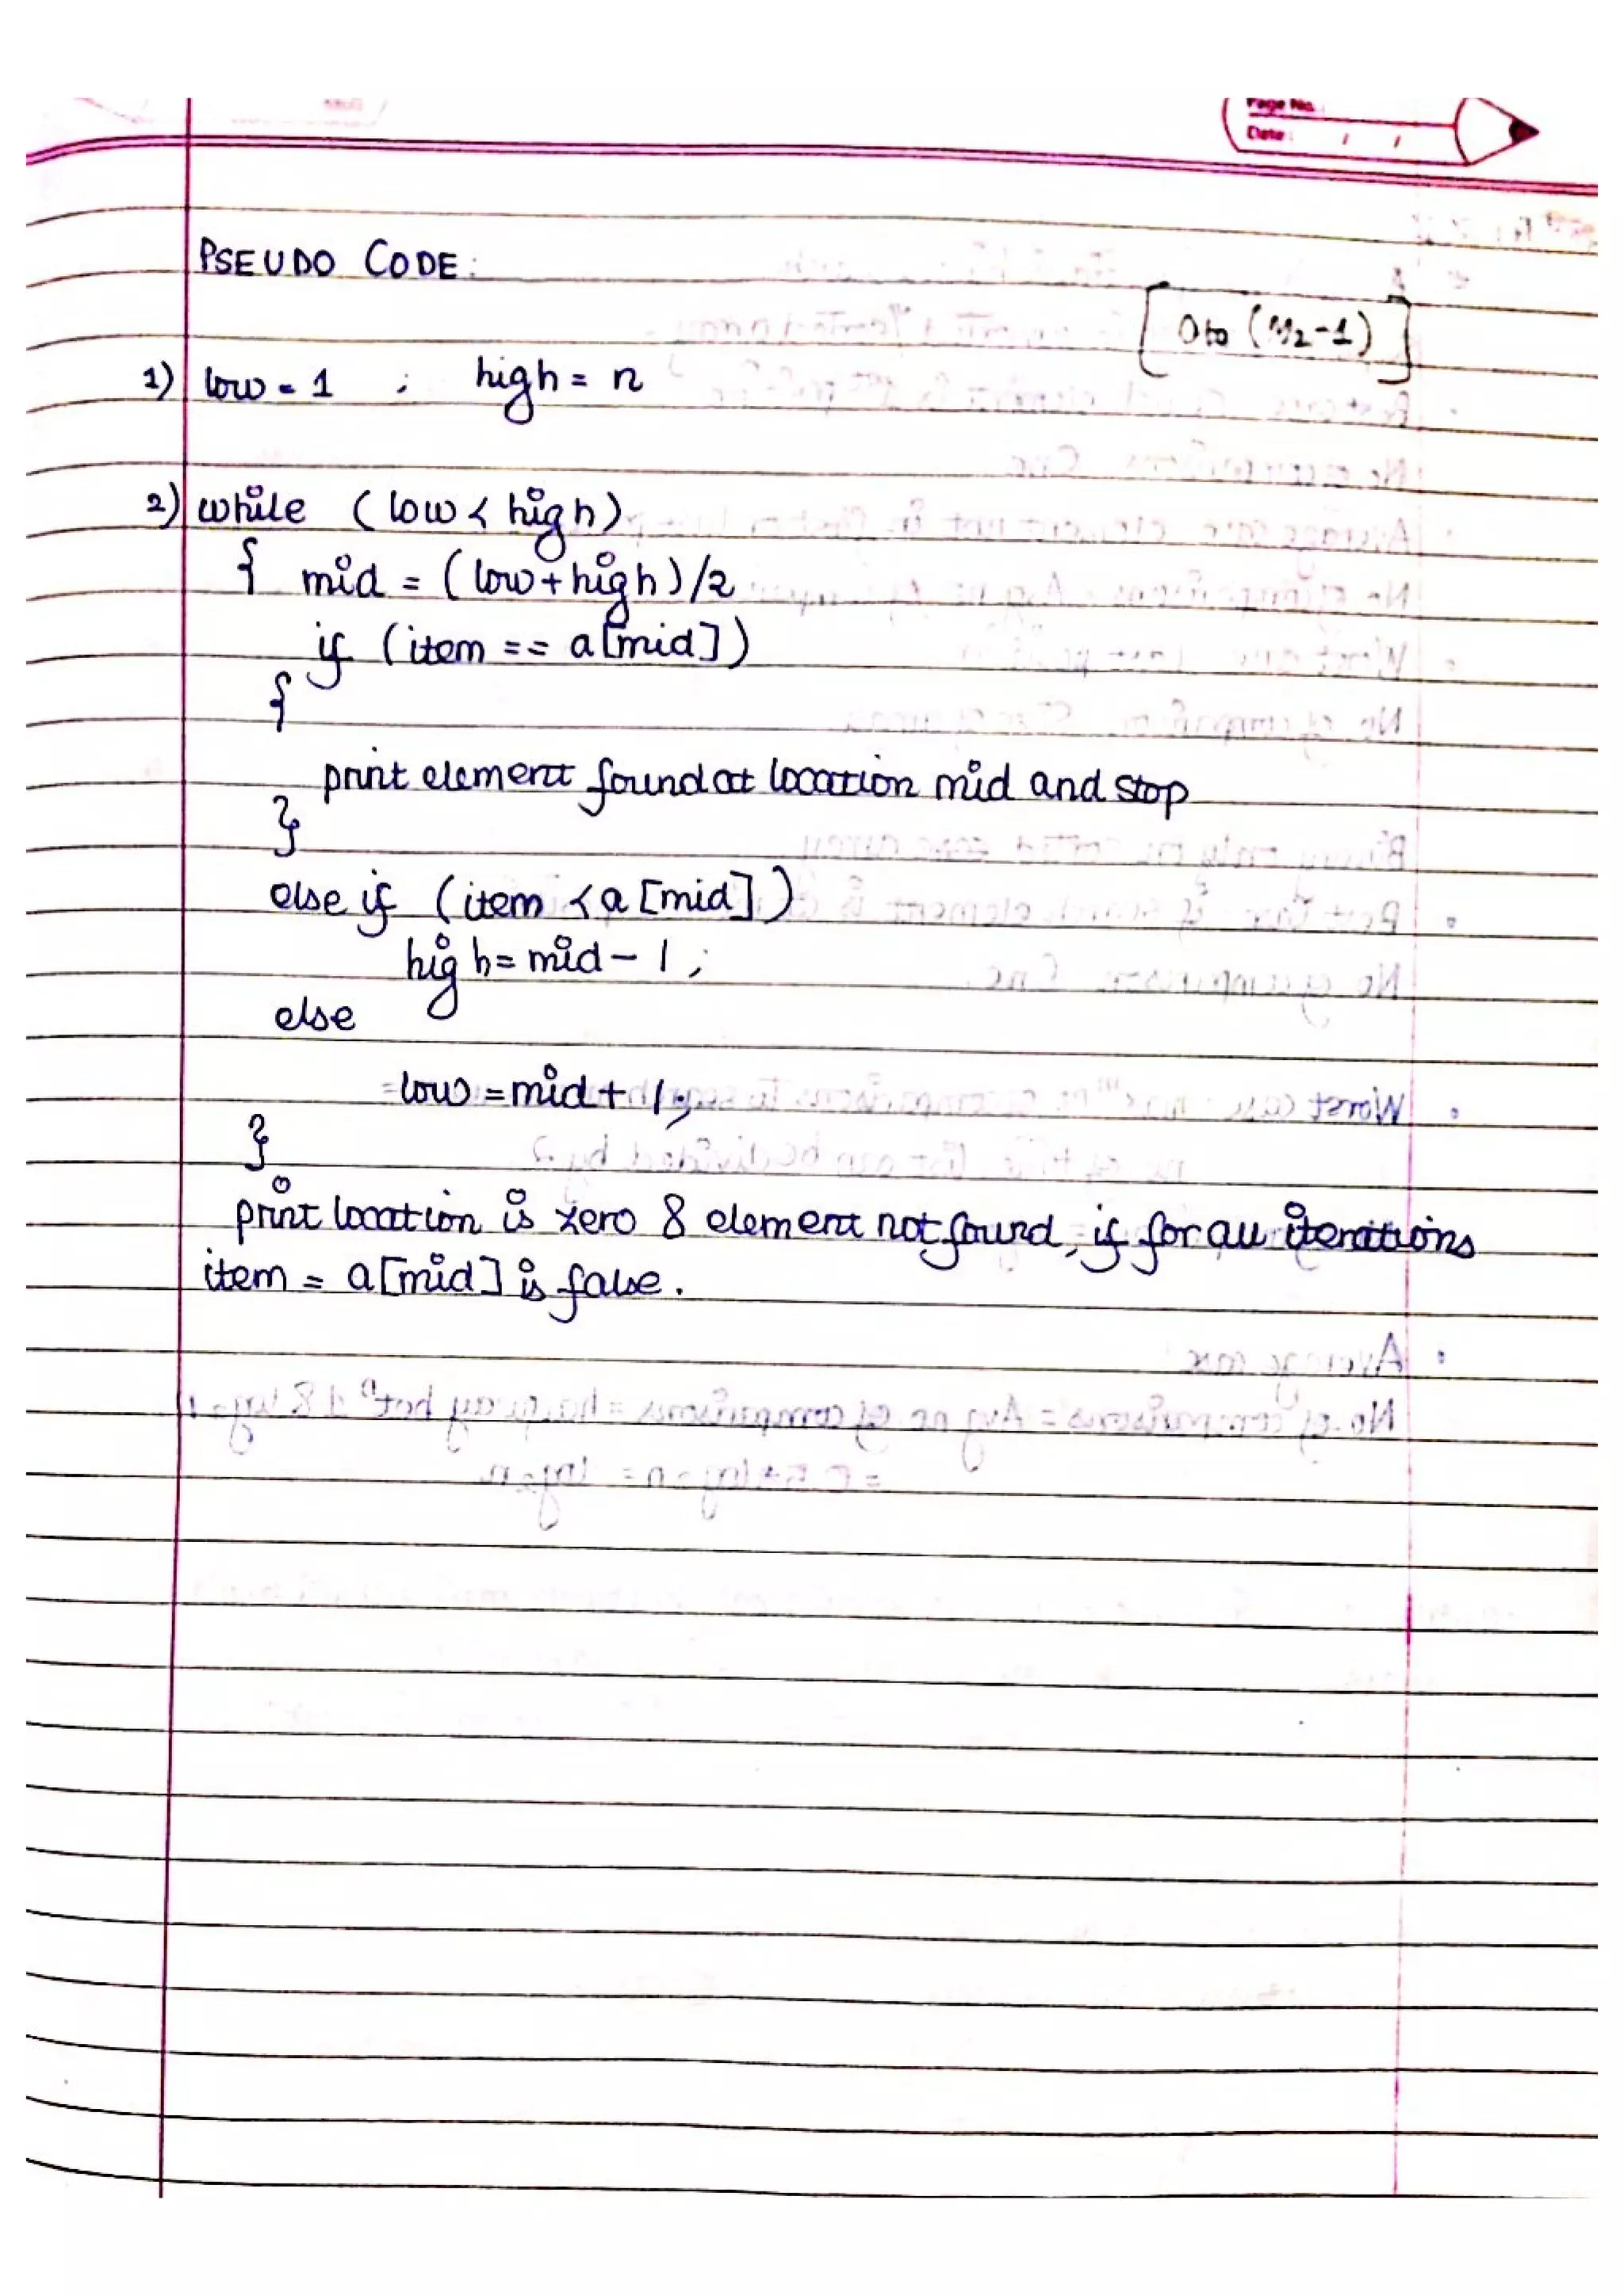 Page No.
Date: / /
PSEUDO CODE:
[0 to (n/2-1)]
1) low = 1 ; high = n
2) while (low < high)
{ mid = (low+high)/2
if (item == a[mid])
{
print element found at location mid and stop
}
else if (item < a[mid])
high = mid - 1;
else
low = mid + 1;
}
print location is zero & element not found, if for all iterations
item = a[mid] is false.